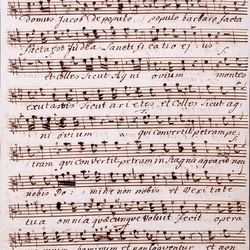 domus Jacob de populo populo barbaro facta
facta est Judea Sancti fi catio ejus
et Colles Sicut Agni ovium montes
exultastis Sicut arietes et Colles Sicut ag
ni ovium qui convertit petram pe
tram qui convertit petram in stagna aquarum non
nobis Do: mine non nobis et Veritate
tua omnia quæcunque Voluit fecit opera
hominum et non